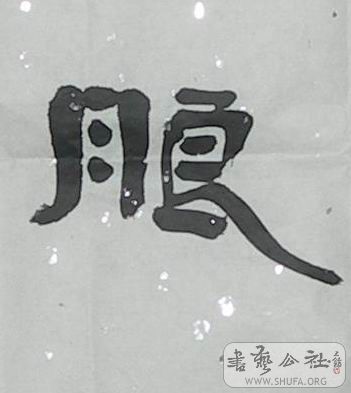 朖
書藝公社
WWW.SHUFA.ORG